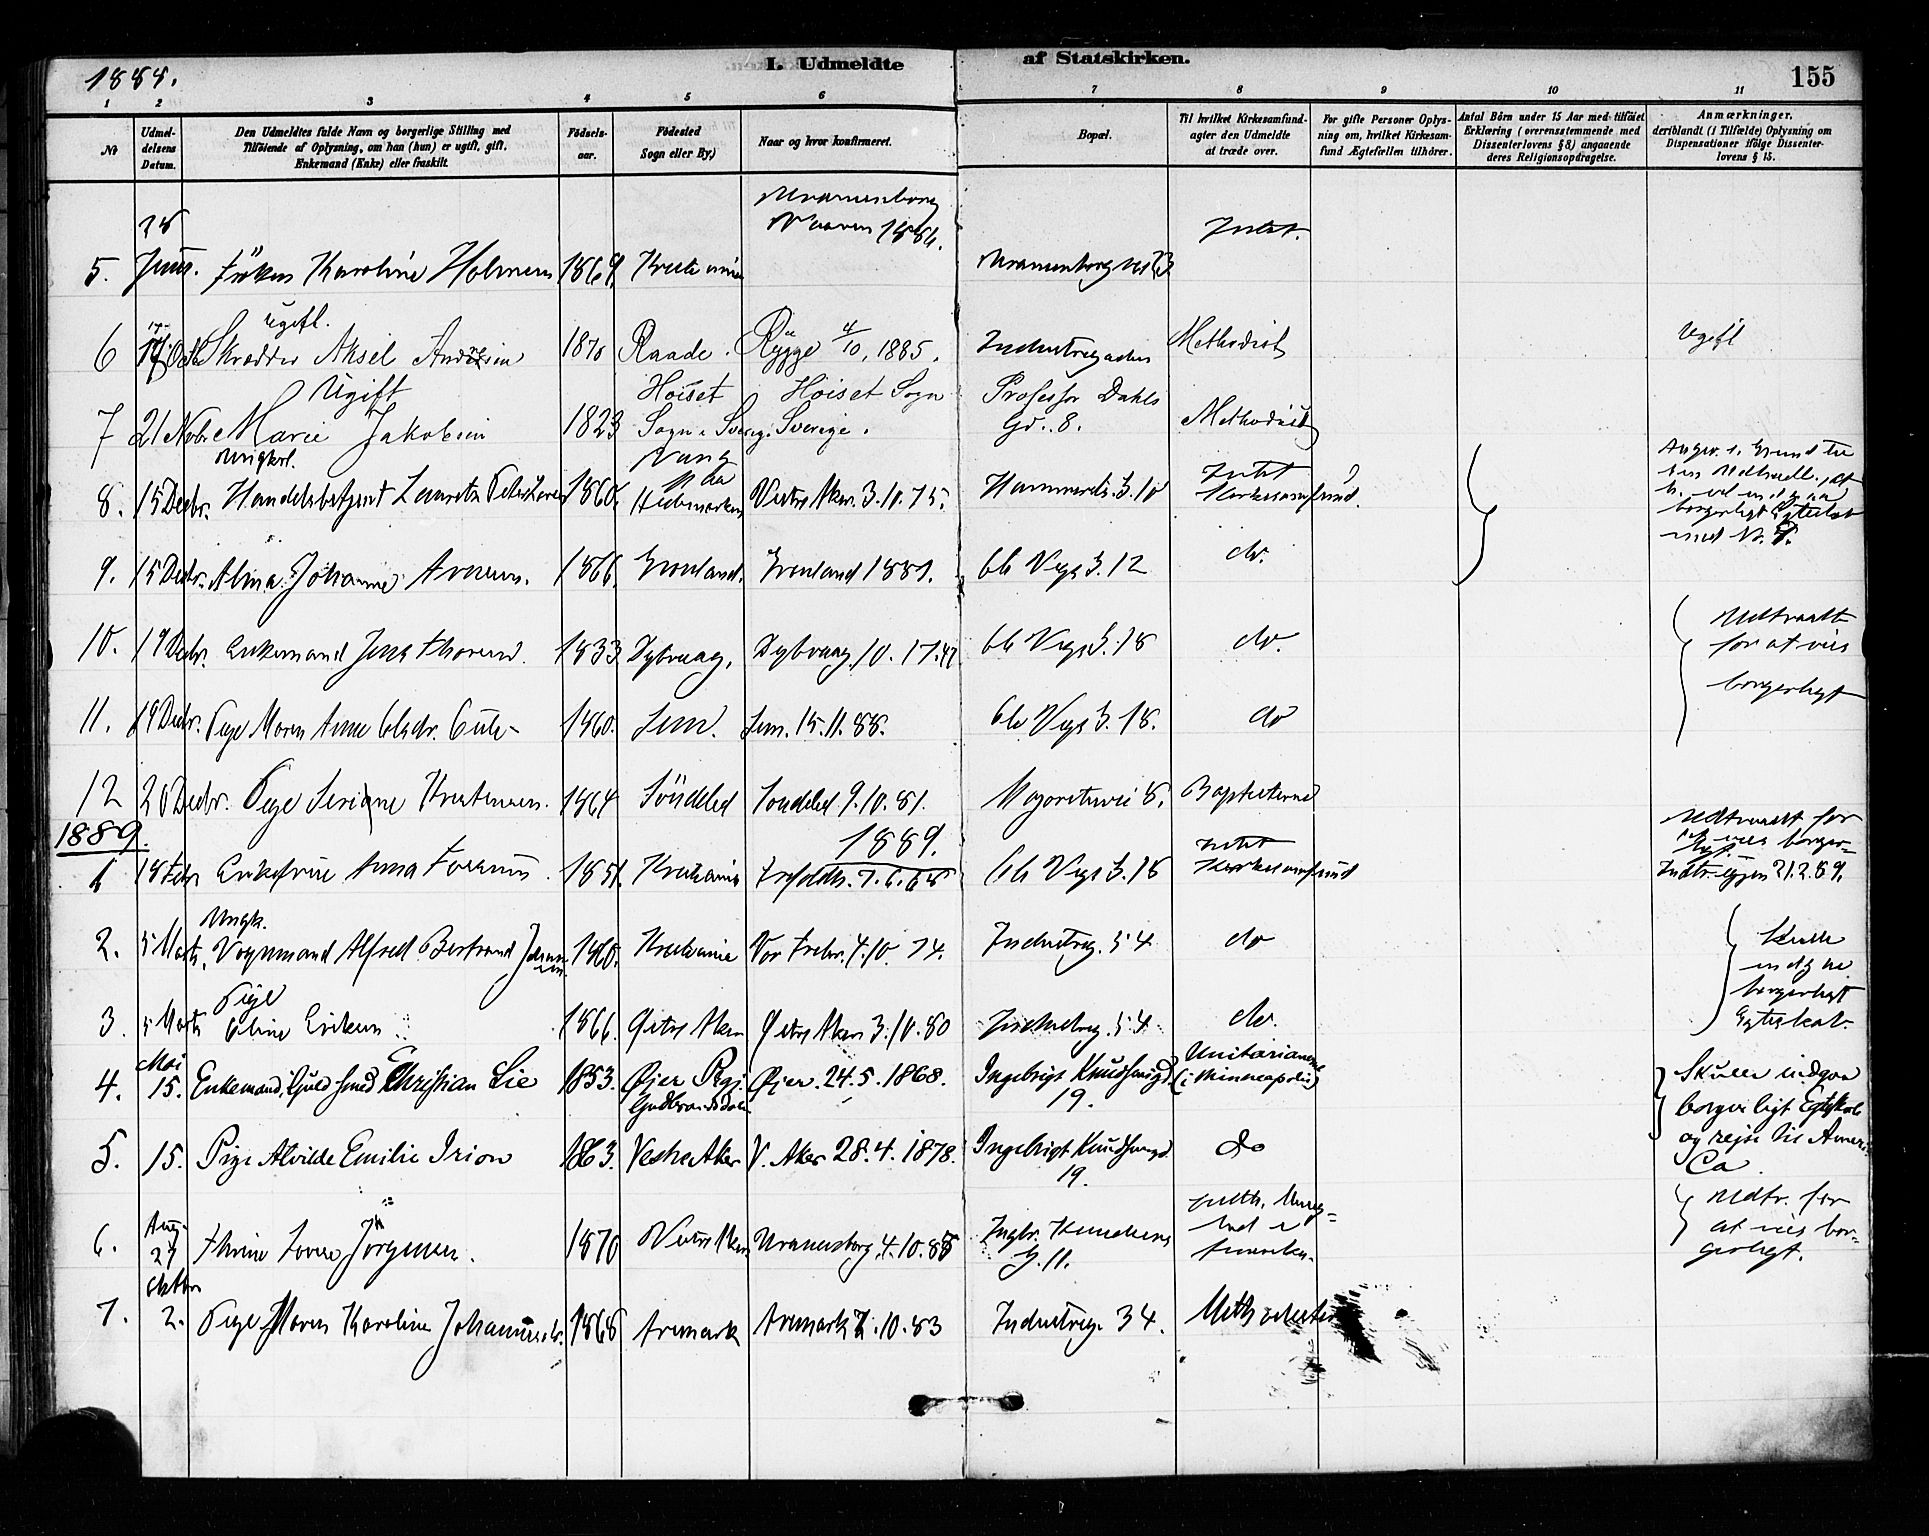 1888.
I. Udmeldte af Statskirken.
155
1 2 3 4 5 6 7 8 9 10 11
№
Udmel-
delsens
Datum.
Den Udmeldtes fulde Navn og borgerlige Stilling med
Tilföiende af Oplysning, om han (hun) er ugift, gift,
Enkemand (Enke) eller fraskilt.
Födsels-
aar.
Födested
Sogn eller By,)
Naar og hvor konfirmeret.
Bopæl.
Til hvilket Kirkesamfund-
agter den Udmeldte
at træde over.
For gifte Personer Oplys-
ning om, hvilket Kirkesam-
fund Ægtefællen tilhörer.
Antal Börn under 15 Aar med tilföiet
Erklæring (overensstemmende med
Dissenterlovens § 8) angaaende
deres Religionsopdragelse.
Anmærkninger.
deriblandt (i Tilfælde) Oplysning om
Dispensationer ifölge Dissenter-
lovens § 15.
Uranienborg
1886.
Intet.
5. Juni. Fröken Karoline Holmsen 1869. Kristiania Uranienborgvei 23
ugift.
6 17 Oct Skrædder Aksel Andersen 1870 Raade. Rygge 4/10, 1885. Industrigaden Methodist Ugift
Ugift Höiset Höiset Sogn Professor Dahls
7 21 Nvbr. Marie Jakobsen 1823 Sogn. Sverig. Sverige. Gd. 8. Methodist
Ungkarl. Vang
8. 15 Decbr. Handelsbetjent Lauritz 1860. Hedemarken Vestre Aker 3.10.75. Hammerstr. 3.10 Intet Kirkesamfund.
borgerligt Egteskab
med N. 9.
9. 15 Decbr. Alma Johanne 1866. Grönland. Grönland 1881. Ole Vigs G. 12 do.
10. 19 Decbr. Enkemand Jens Thorsen. 1833 Dybvaag. Dybvaag 10. 17.47 Ole Vigs G. 18 do.
Udtraadt
for at vies
borgerligt
11. 19 Decbr. Pige Maren Anne Olsdr. 1860. Sem. Sem. 15.11.88. Ole Vigs G. 18. do
12 20 Decbr. Pige Seriane Kristensen. 1864 Söndeled Söndeled 9.10.81. Majorstuvei 8. Baptisterne
1889.
1889.
1 18 Febr Enkefrue Anna 1851. Kristiania Trefoldh. 7.6.68 Ole Vigs G. 18 intet Kirkesamfund
Udtraadt for
at vies borger-
ligt.
21.2.89.
Ungk.
2. 5 Marts. Vognmand Alfred Bertrand Jensen 1860. Kristiania Vor Frelser. 4.10. 74. Industrig. 54 do
Skulle
indgaa
borgerligt
Egteskab
Pige
3. 5 Marts Oline Eriksen 1866. Östre Aker Östre Aker 3.10.80 Industrig. 54 do.
Mai
4. 15. Enkemand, Guldsmed Christian Lie 1853. Øjer Prgj. Gudbrandsdalen Øjer. 24.5.1868. Ingebrigt Knudsensgd. 19. Unitarianerne (i Minneapolis)
Skulle indgaa
borgerligt Egteskab
og rejse til Ameri-
ca.
5. 15. Pige Alvilde Emilie Irion 1863. Vestre Aker V. Aker 28.4.1878. Ingebrigt Knudsensgd. 19. do
Aug.
6. 27 Thrine Lovise Jörgensen. 1870 Vestre Aker Uranienborg. 4.10.85 Ingbr. Knudsens G. 11. Amerika.
Udtr. for
at vies bor-
gerligt.
Oktbr
7. 2. Pige Maren Karoline Johannesdr. 1868 Aremark Aremark 7.10.83 Industrig. 34. Methodister